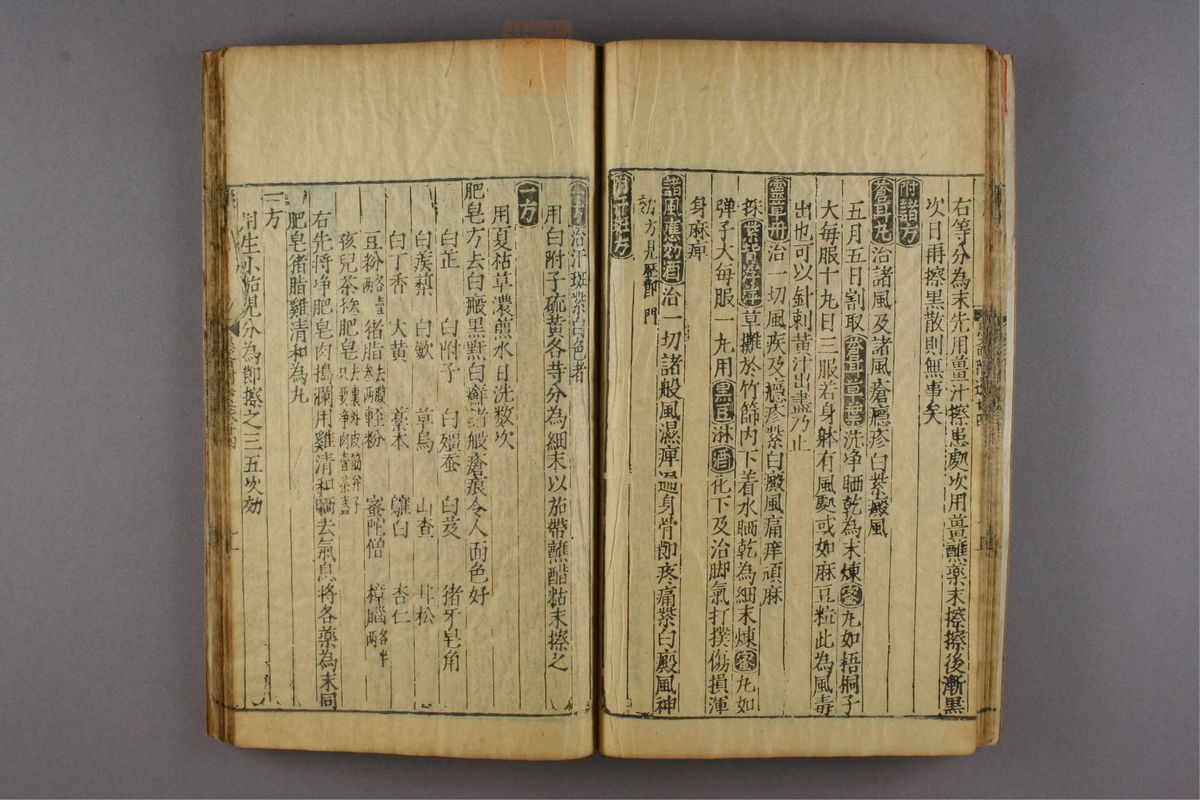 右等分為末先用薑汁擦患處次用薑蘸藥末擦擦後漸黑
次日再擦黑散則無事矣
附諸方
蒼耳丸治諸風及諸風瘡癮疹白紫癜風
五月五日割取蒼耳草葉洗净晒乾為末煉蜜丸如梧桐子
大每服十丸日三服若身躰有風處或如麻豆粒此為風毒
出也可以針刺黃汁出盡乃止
靈草丹治一切風疾及癮疹紫白癜風痛痒頑麻
採紫背浮萍草攤於竹篩内下着水晒乾為細末煉蜜丸如
彈子大每服一丸用黑豆淋酒化下及治脚氣打撲傷損渾
身麻痺
諸風應効酒治一切諸般風濕痺遍身骨節疼痛紫白癜風神
効方見歷節門
附汗斑方
一方治汗斑紫白色者
用白附子硫黃各等分為細末以茄帶蘸醋粘末擦之
一方
用夏枯草濃煎水日洗数次
肥皂方去白癜黑䵟白癬諸般瘡痕令人面色好
白芷 白附子 白殭蚕 白芨 猪牙皂角
白蒺藜 白歛 草烏 山查 甘松
白丁香 大黃 藁本 鶴白 杏仁
豆粉 猪脂 輕粉 蜜陀僧 樟腦各半両
孩兒茶 肥皂
右先將净肥皂肉搗瀾用雞清和晒去氣息将各藥為末同
肥皂猪脂雞清和為丸
一方
用生小茄児分為節擦之三五次効